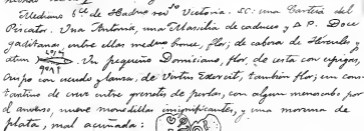 Mediano 5to de Hadria reso Victoria. SC. una Cartera del
Pescator. Una Antonia, una Massilia de caduceo y Δ P. Doce
gaditanas, entre ellas mediano bronce, flor; de cabeza de Hércules, y
atun Un pequeño Domiciano, flor, de cesta con espigas,
Grupo con escudo y lanza, de Virtus Exercit, tambien flor; un cons-
tantino de cruz entre grenetis de perlas, con algun menoscabo por
el anverso, nueve monedillas insignificantes, y una moruna de
plata, mal acuñada: